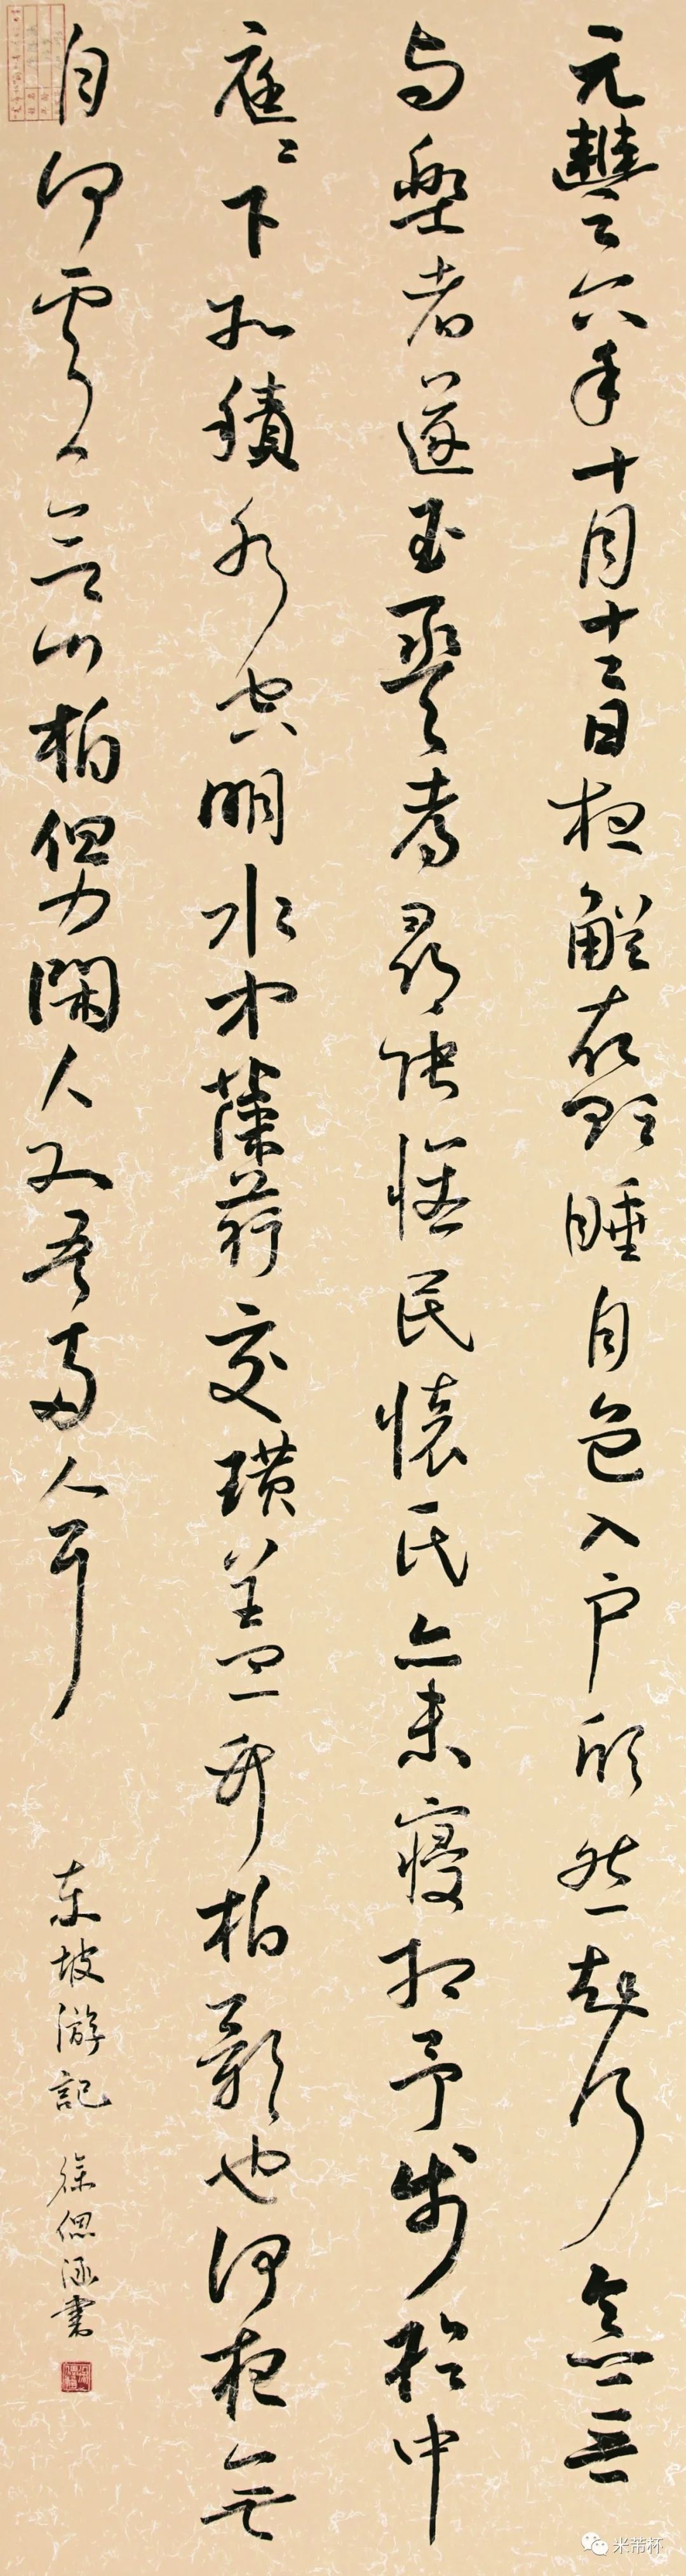 元豐六年十月十二日夜解衣欲睡月色入戶欣然起行念無
与樂者遂至承天寺尋張懷民懷民亦未寢相予步於中
庭庭下如積水空明水中藻荇交璜蓋竹柏影也何夜無
月何處無竹柏但少閑人如吾兩人耳
东坡游記 徐偲涵書
米芾杯